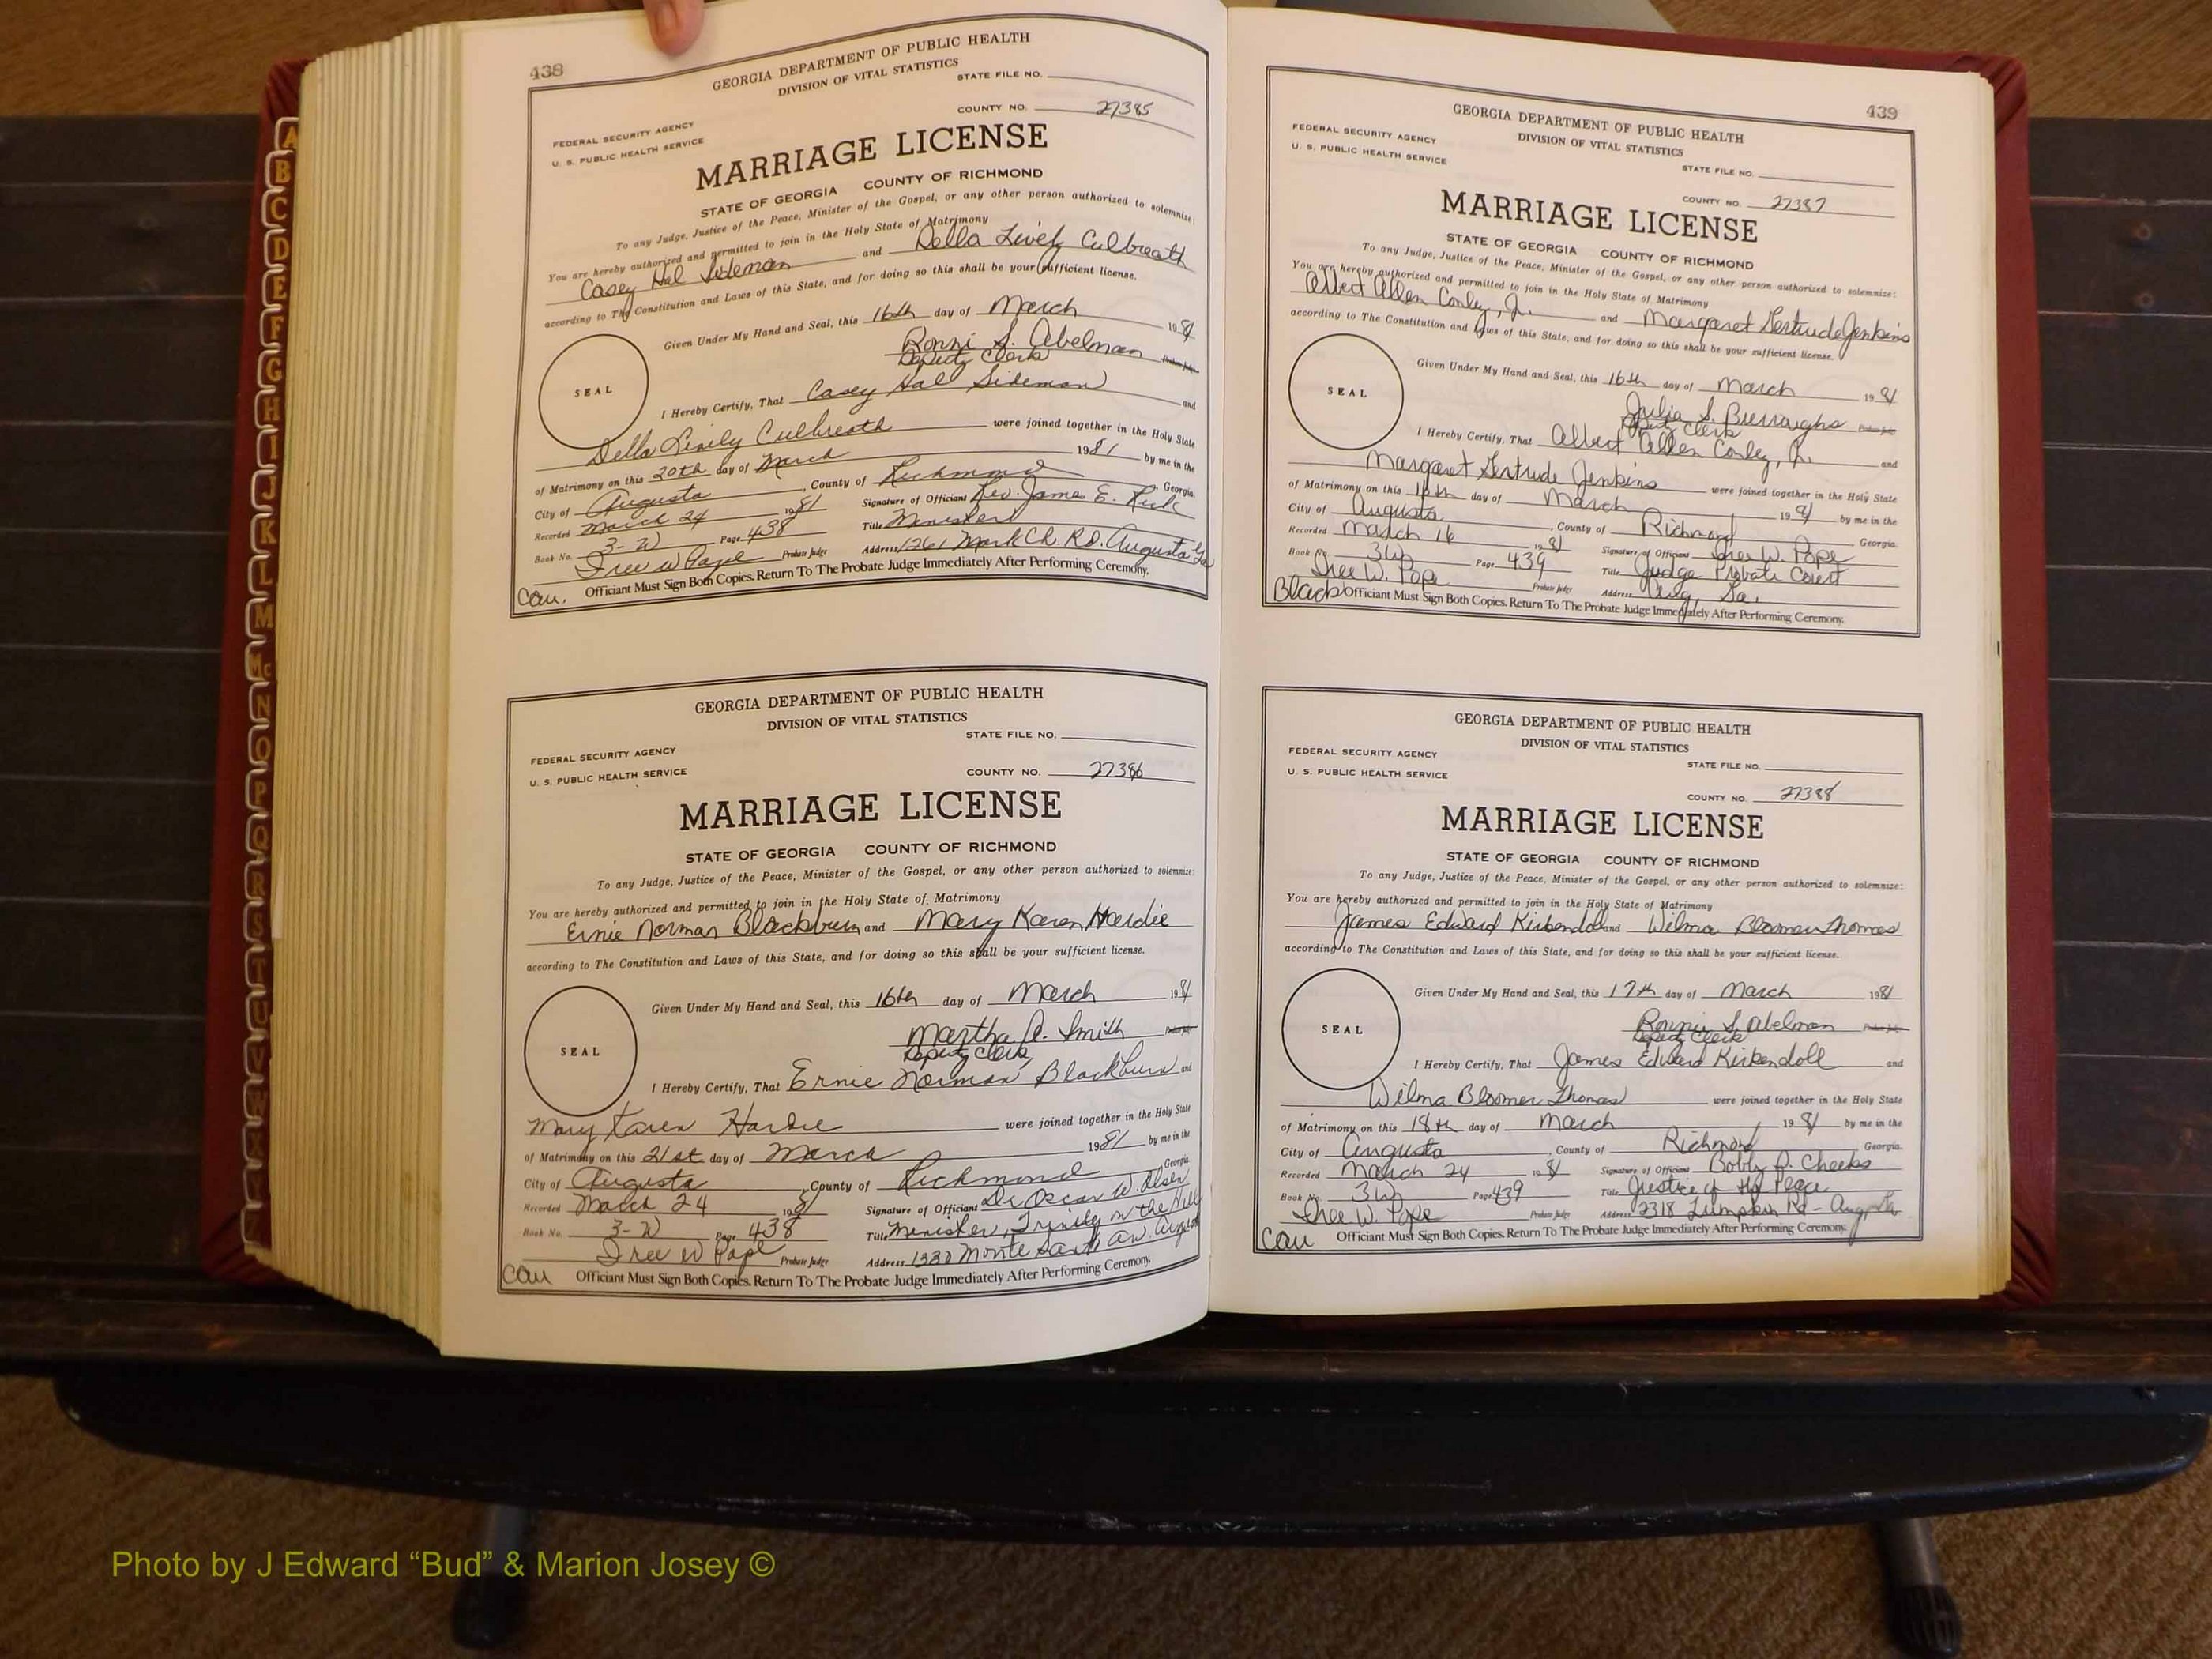 438
GEORGIA DEPARTMENT OF PUBLIC HEALTH
DIVISION OF VITAL STATISTICS
STATE FILE NO.
COUNTY NO. 27385
FEDERAL SECURITY AGENCY
U. S. PUBLIC HEALTH SERVICE
MARRIAGE LICENSE
STATE OF GEORGIA COUNTY OF RICHMOND
To any Judge, Justice of the Peace, Minister of the Gospel, or any other person authorized to solemnize:
You are hereby authorized and permitted to join in the Holy State of Matrimony
Casey Hal Sideman and Della Lively Culbreath
according to The Constitution and Laws of this State, and for doing so this shall be your sufficient license.
Given Under My Hand and Seal, this 16th day of March 1981
Ronni S. Abelman Probate Judge
Deputy Clerk
SEAL
I Hereby Certify, That Casey Hall Sideman and
Della Lively Culbreath were joined together in the Holy State
of Matrimony on this 20th day of March 1981 by me in the
City of Augusta, County of Richmond Georgia.
Recorded March 24 1981 Signature of Officiant Rev. James E.
Book No. 3-W Page 438 Title Minister
Iree W Pope Probate Judge Address 1261 Mark Ch. Rd. Augusta Ga
Cau. Officiant Must Sign Both Copies. Return To The Probate Judge Immediately After Performing Ceremony.
GEORGIA DEPARTMENT OF PUBLIC HEALTH
DIVISION OF VITAL STATISTICS
STATE FILE NO.
FEDERAL SECURITY AGENCY
U. S. PUBLIC HEALTH SERVICE
COUNTY NO. 27386
MARRIAGE LICENSE
STATE OF GEORGIA COUNTY OF RICHMOND
To any Judge, Justice of the Peace, Minister of the Gospel, or any other person authorized to solemnize:
You are hereby authorized and permitted to join in the Holy State of Matrimony
Ernie Norman Blackburn and Mary Karen Hardie
according to The Constitution and Laws of this State, and for doing so this shall be your sufficient license.
Given Under My Hand and Seal, this 16th day of March 1981
Martha A. Smith Probate Judge
Deputy Clerk
SEAL
I Hereby Certify, That Ernie Norman Blackburn and
Mary Karen Hardie were joined together in the Holy State
of Matrimony on this 21st day of March 1981 by me in the
City of Augusta, County of Richmond Georgia.
Recorded March 24 1981 Signature of Officiant Dr Oscar W. Olsen
Book No. 3-W Page 438 Title Minister, Trinity on the Hill
Iree W Pope Probate Judge Address 1330 Monte Sano Av. August
Cau Officiant Must Sign Both Copies. Return To The Probate Judge Immediately After Performing Ceremony.
439
GEORGIA DEPARTMENT OF PUBLIC HEALTH
DIVISION OF VITAL STATISTICS
FEDERAL SECURITY AGENCY
U. S. PUBLIC HEALTH SERVICE
STATE FILE NO.
COUNTY NO. 27387
MARRIAGE LICENSE
STATE OF GEORGIA COUNTY OF RICHMOND
To any Judge, Justice of the Peace, Minister of the Gospel, or any other person authorized to solemnize:
You are hereby authorized and permitted to join in the Holy State of Matrimony
Albert Allen Conley, Jr. and Margaret Gertrude Jenkins
according to The Constitution and Laws of this State, and for doing so this shall be your sufficient license.
Given Under My Hand and Seal, this 16th day of March 1981
Julia S. Burroughs Probate Judge
Deputy Clerk
SEAL
I Hereby Certify, That Albert Allen Conley, Jr. and
Margaret Gertrude Jenkins were joined together in the Holy State
of Matrimony on this 16th day of March 1981 by me in the
City of Augusta, County of Richmond Georgia.
Recorded March 16 1981 Signature of Officiant Iree W. Pope
Book No. 3W Page 439 Title Judge Probate Court
Iree W. Pope Probate Judge Address Aug, Ga.
Black Officiant Must Sign Both Copies. Return To The Probate Judge Immediately After Performing Ceremony.
GEORGIA DEPARTMENT OF PUBLIC HEALTH
DIVISION OF VITAL STATISTICS
FEDERAL SECURITY AGENCY
U. S. PUBLIC HEALTH SERVICE
STATE FILE NO.
COUNTY NO. 27388
MARRIAGE LICENSE
STATE OF GEORGIA COUNTY OF RICHMOND
To any Judge, Justice of the Peace, Minister of the Gospel, or any other person authorized to solemnize:
You are hereby authorized and permitted to join in the Holy State of Matrimony
James Edward Kirkendoll and Wilma Bloomer Thomas
according to The Constitution and Laws of this State, and for doing so this shall be your sufficient license.
Given Under My Hand and Seal, this 17th day of March 1981
Ronni S. Abelman Probate Judge
Deputy Clerk
SEAL
I Hereby Certify, That James Edward Kirkendoll and
Wilma Bloomer Thomas were joined together in the Holy State
of Matrimony on this 18th day of March 1981 by me in the
City of Augusta, County of Richmond Georgia.
Recorded March 24 1981 Signature of Officiant Bobby P. Cheeks
Book No. 3W Page 439 Title Justice of the Peace
Iree W. Pope Probate Judge Address 2318 Lumpkin Rd - Aug, Ga
Cau Officiant Must Sign Both Copies. Return To The Probate Judge Immediately After Performing Ceremony.
A
B
C
D
E
F
G
H
I
J
K
L
M
Mc
N
O
P
Q
R
S
T
U
V
W
X
Y
Z
Photo by J Edward “Bud” & Marion Josey ©